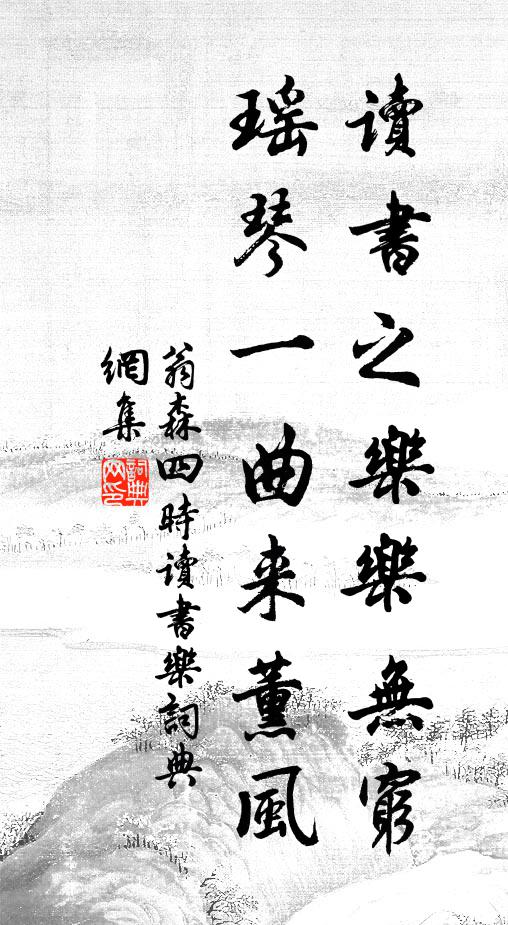 讀書之樂樂無窮
瑶琴一曲来薰風
翁森四時讀書樂詞典
網集
詞典
网印